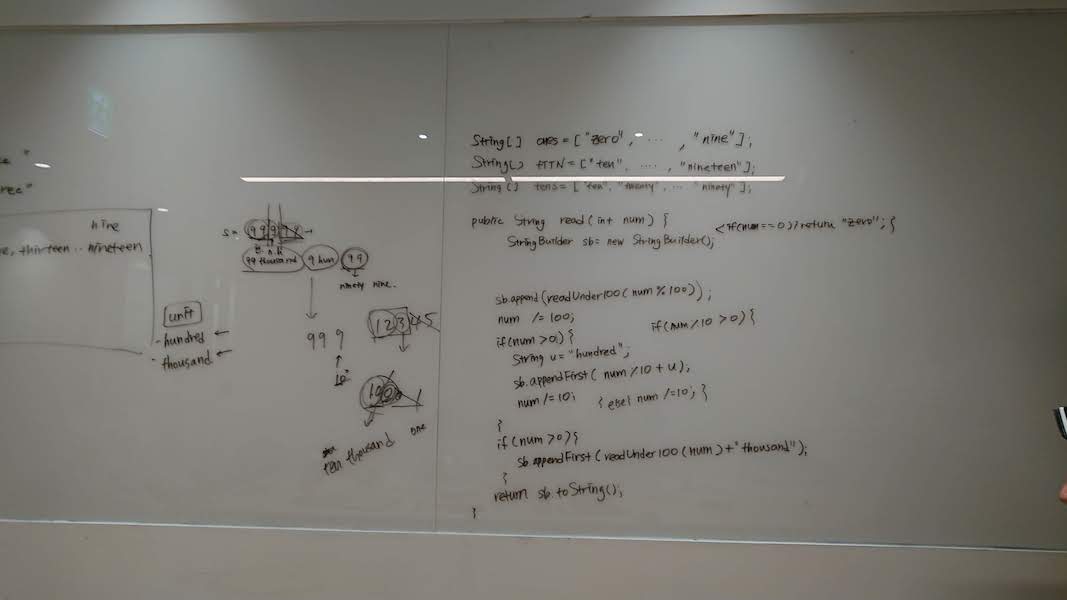 nine
thirteen .. nineteen
unit
- hundred ←
- thousand ←
99 thousand 9 hun 99
ninety nine.
99 9
12345
10
ten thousand one
String[] ones = ["zero", ... , "nine"];
String[] = ["ten", ...., "nineteen"];
String[] tens = ["ten", "twenty", ... "ninety"];
public String read(int num) {
<if(num==0){return "zero"; }
StringBuilder sb= new StringBuilder();
sb.append(readUnder100(num%100));
num /= 100;
if(num>0){ if(num%10>0){
String u="hundred";
sb.appendFirst( num%10 + u);
num /= 10; } else{ num /=10; }
}
if(num>0){
sb.appendFirst(readUnder100(num)+"thousand");
}
return sb.toString();
}